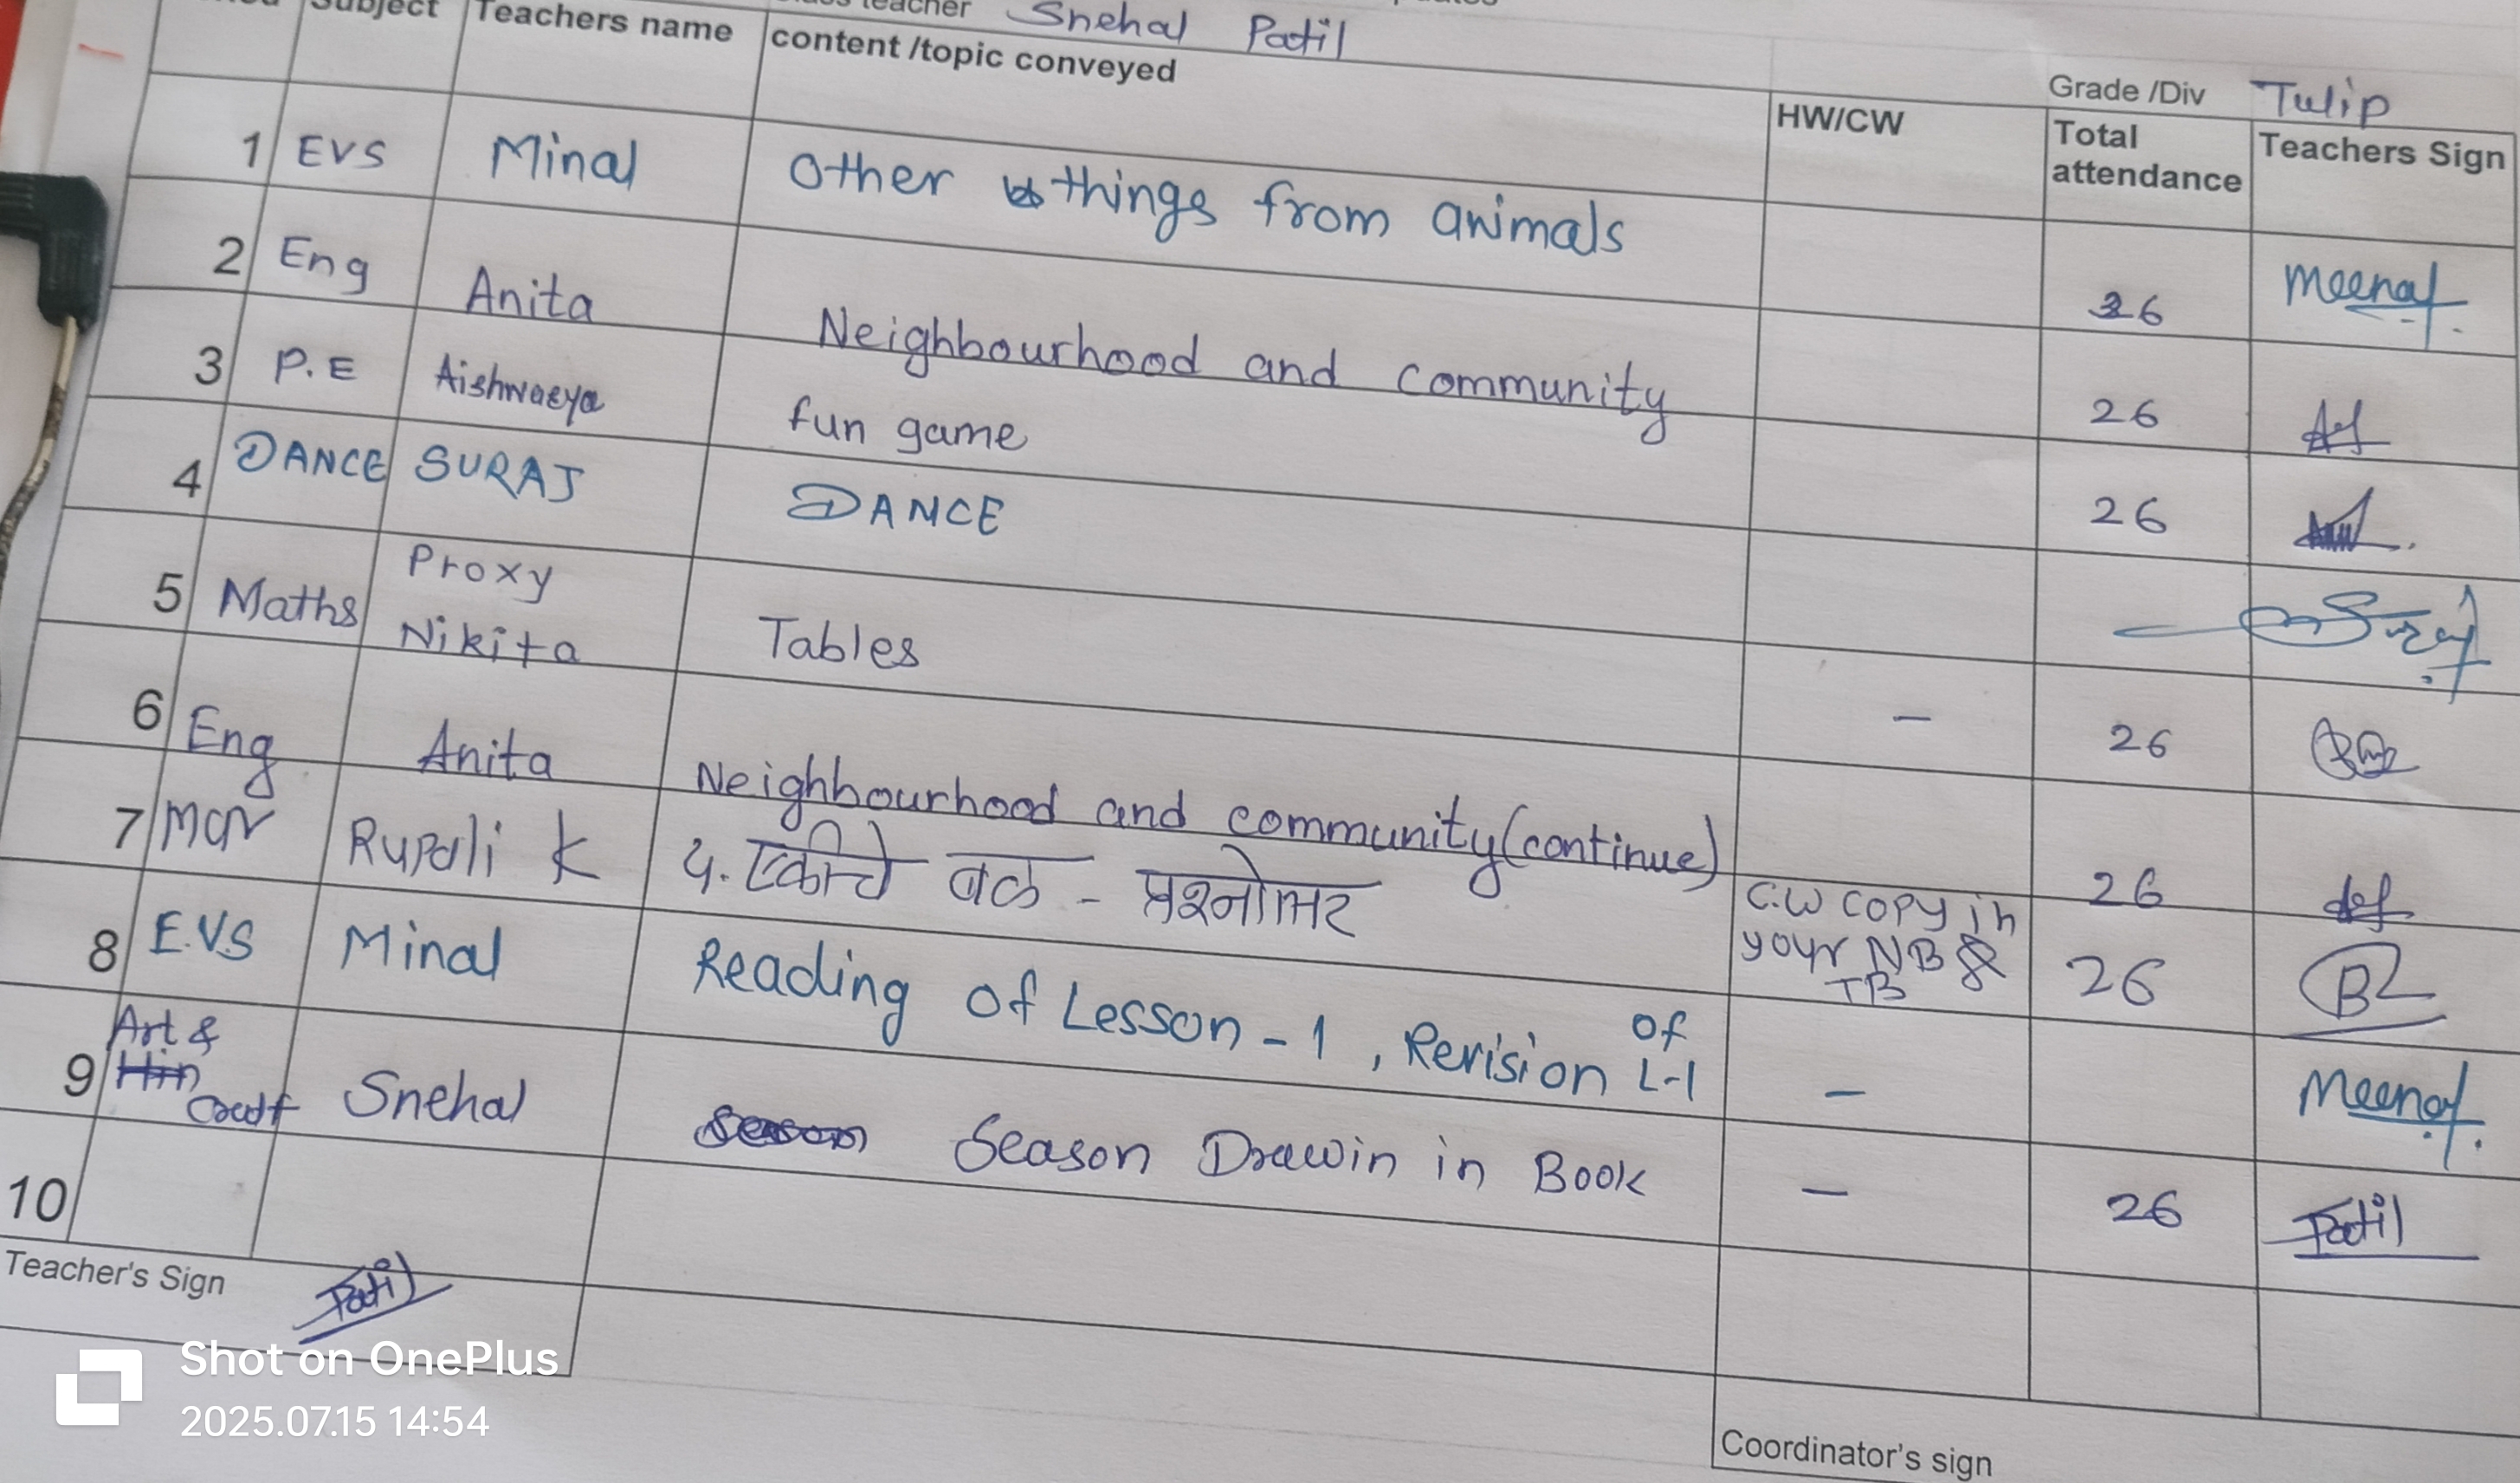 teacher Snehal Patil
Grade /Div Tulip
Subject Teachers name content /topic conveyed HW/CW Total attendance Teachers Sign
1 EVS Minal Other things from animals 26 Meenal
2 Eng Anita Neighbourhood and community 26
3 P.E Aishwarya fun game 26
4 DANCE SURAJ DANCE Suraj
5 Maths Proxy Nikita Tables – 26
6 Eng Anita Neighbourhood and community (continue) 26
7 Mar Rupali K ५. एकीचे बळ - प्रश्नोत्तर C.W copy in your NB & TB 26
8 E.V.S Minal Reading of Lesson - 1, Revision of L-1 – Meenal
9 Art & Craft Snehal Season Drawin in Book – 26 Patil
10
Teacher's Sign Patil
Coordinator's sign
Shot on OnePlus
2025.07.15 14:54